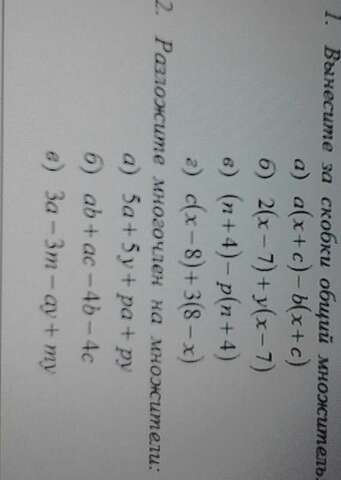 1. Вынесите за скобки общий множитель.
а) a(x+c)−b(x+c)
б) 2(x−7)+y(x−7)
в) (n+4)−p(n+4)
г) c(x−8)+3(8−x)
2. Разложите многочлен на множители:
а) 5a+5y+pa+py
б) ab+ac−4b−4c
в) 3a−3m−ay+my